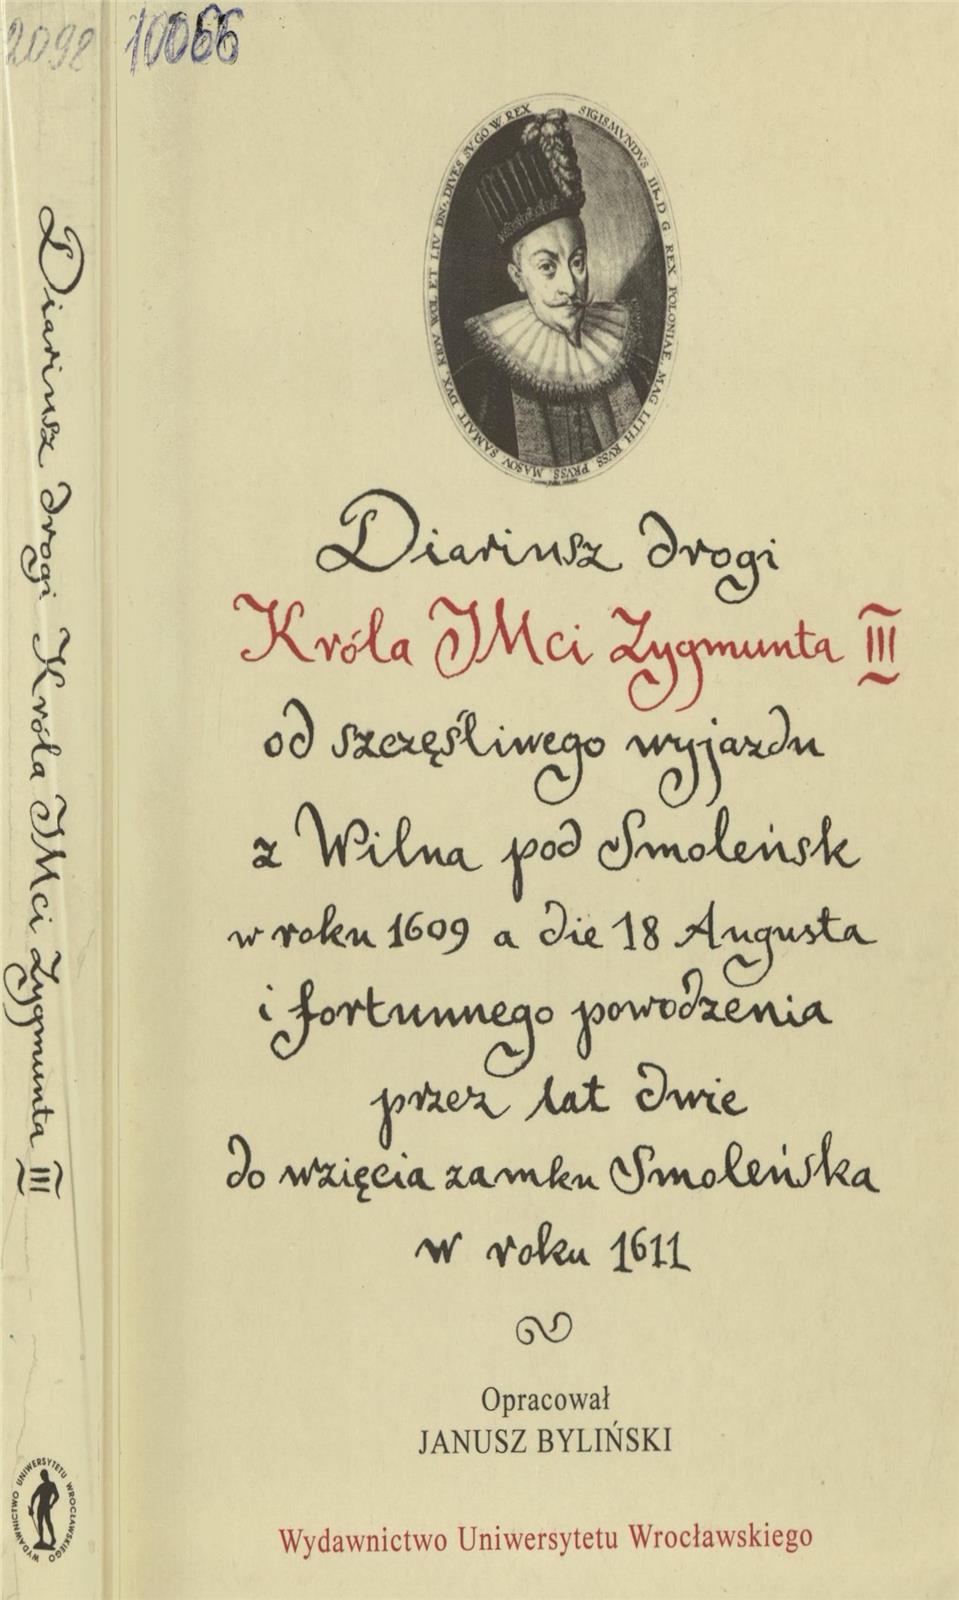 2098
10066
SIGISMVNDVS III. D G REX POLONIAE. MAG LITH RVSS PRVSS MASOV SAMAIT DVX. KIOV WOL ET LIV DN.
Diariusz drogi
Króla JMci Zygmunta III
od szczęśliwego wyjazdu
z Wilna pod Smoleńsk
w roku 1609 a die 18 Augusta
i fortunnego powodzenia
przez lat dwie
do wzięcia zamku Smoleńska
w roku 1611
Opracował
JANUSZ BYLIŃSKI
Wydawnictwo Uniwersytetu Wrocławskiego
Diariusz drogi Króla JMci Zygmunta III
WYDAWNICTWO UNIWERSYTETU WROCŁAWSKIEGO